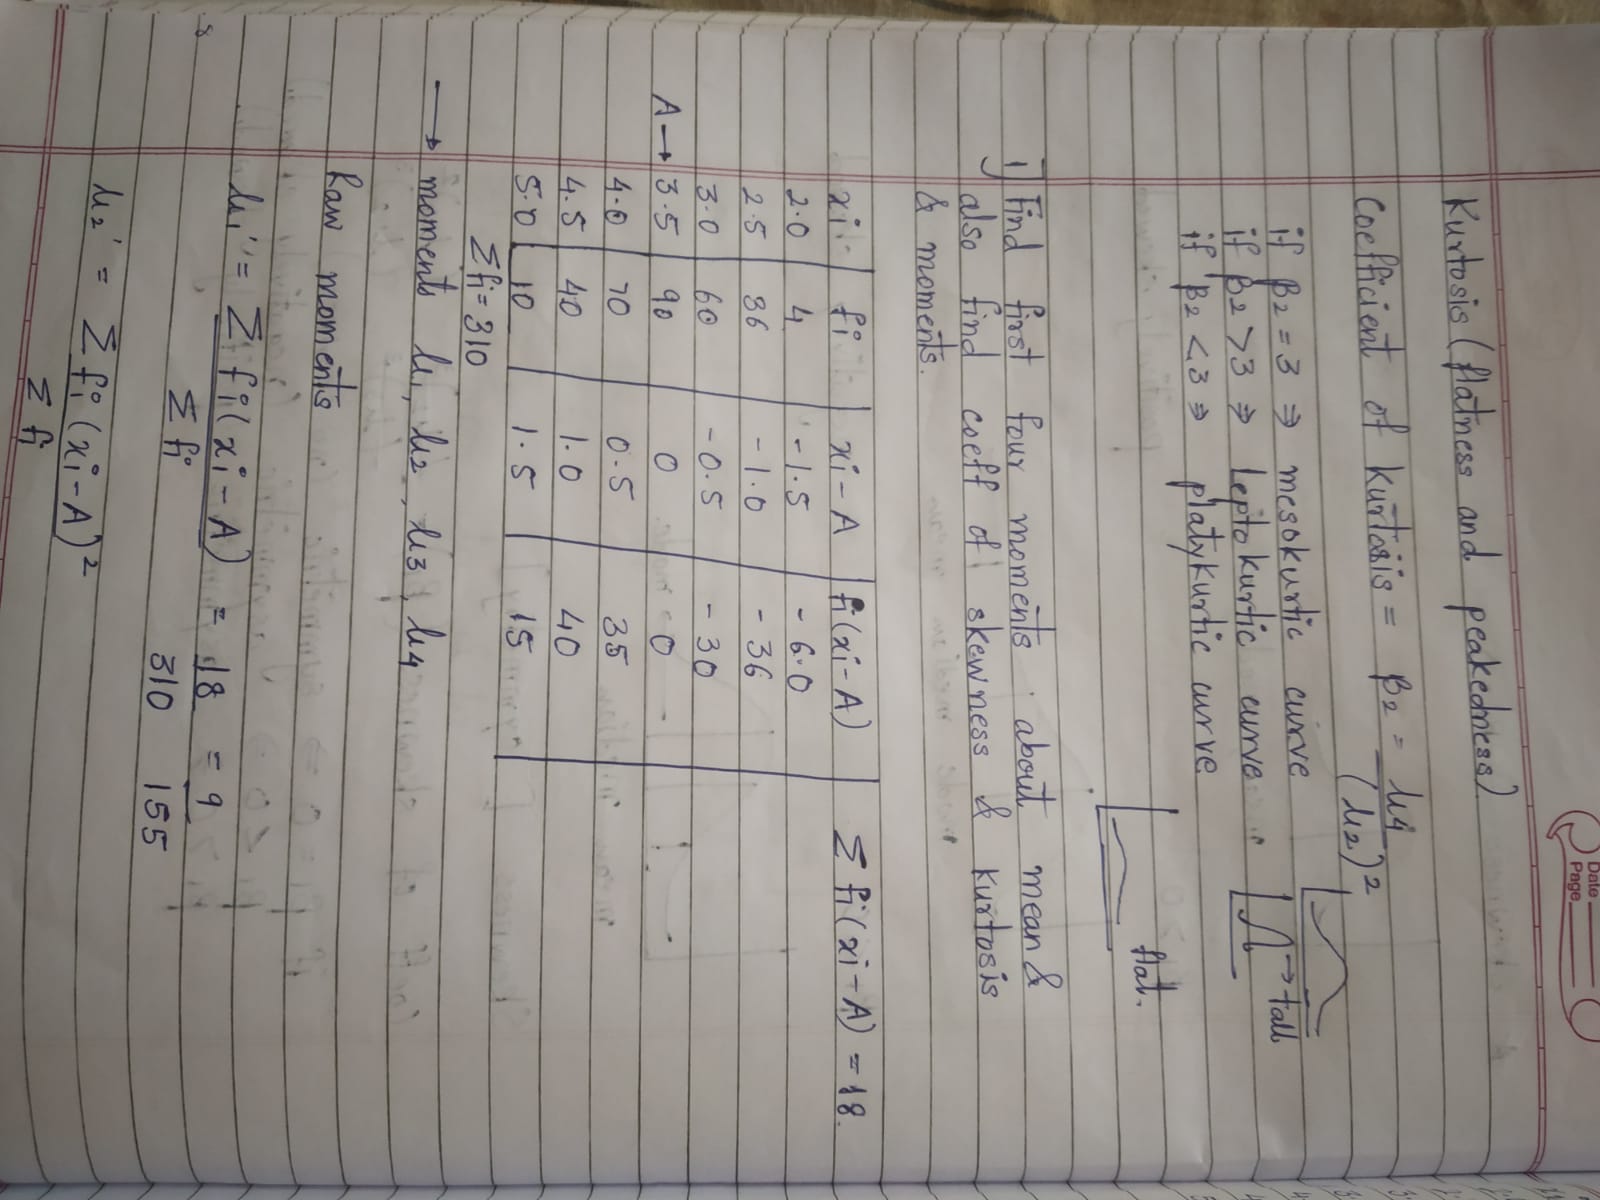 Date
Page
Kurtosis (flatness and peakedness)
Coefficient of Kurtosis = β2 = μ4 / (μ2)²
if β2 = 3 ⇒ mesokurtic curve
if β2 > 3 ⇒ Leptokurtic curve → tall
if β2 < 3 ⇒ platykurtic curve
flat.
1] Find first four moments about mean &
also find coeff of skewness & Kurtosis
& moments.
xi fi xi - A fi(xi - A) Σ fi(xi - A) = 18.
2.0 4 -1.5 - 6.0
2.5 36 -1.0 - 36
3.0 60 -0.5 - 30
A → 3.5 90 0 0
4.0 70 0.5 35
4.5 40 1.0 40
5.0 10 1.5 15
Σ fi = 310
→ moments μ1, μ2, μ3, μ4
Raw moments
μ1' = Σ fi(xi - A) / Σ fi = 18 / 310 = 9 / 155
μ2' = Σ fi (xi - A)² / Σ fi